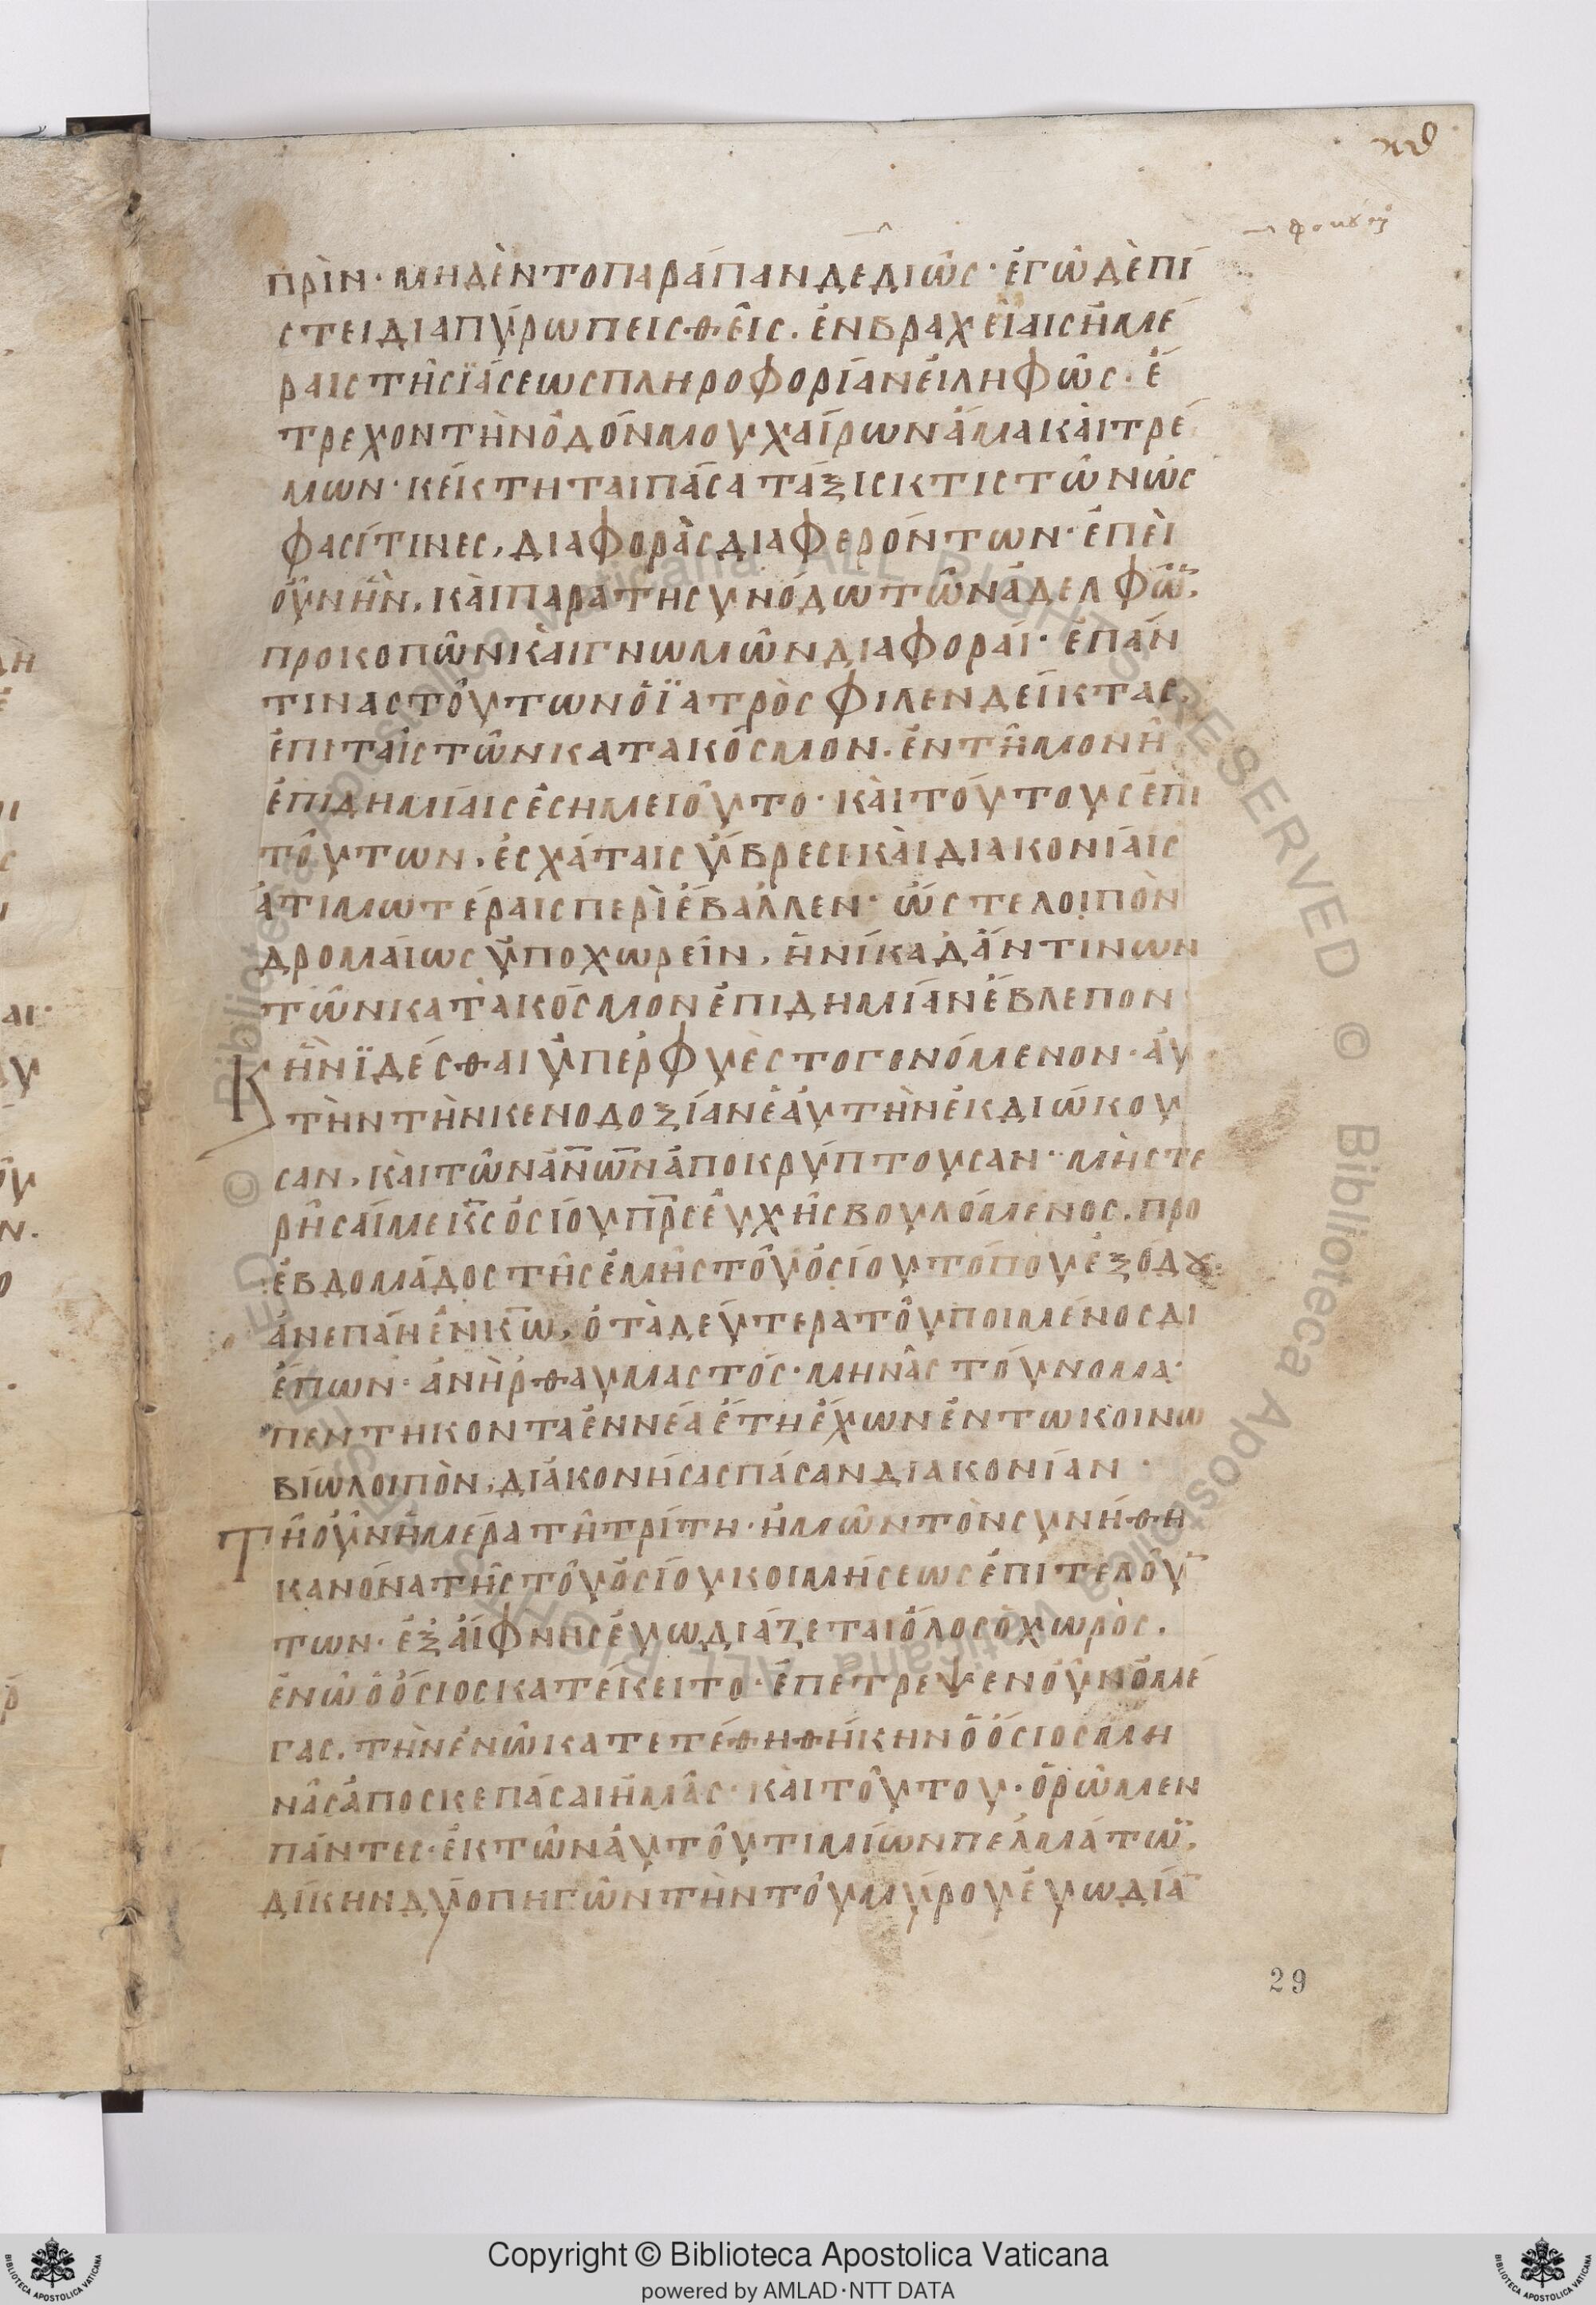 κθ
πρὶν· μηδὲν τοπαράπαν δεδιῶς· ἐγὼ δὲ πί
στει διαπύρω πεισθεὶς. ἐν βραχείαις ἡμέ
ραις τῆς ϊάσεως πληροφορίαν εἰληφῶς· ἔ
τρεχον τὴν ὁδόν μου χαίρων ἅμα καὶ τρέ
μων· κέκτηται πᾶσα τάξις κτιστῶν ὡς
φασί τινες, διαφορὰς διαφερόντων· ἐπεὶ
οὖν ἦν, καὶ παρα τη συνόδω τῶν ἀδελφῶ̅,
προκοπῶν καὶ γνωμῶν διαφοραί· ἐπάν
τινας τούτων ὁ ϊατρὸς φιλενδείκτας,
ἐπι ταῖς τῶν κατα κόσμον. ἐν τῆ μονῆ
ἐπιδημίαις ἐσημειοῦτο· καὶ τούτους ἐπι
τούτων, ἐσχάταις ὕβρεσι καὶ διακονίαις
ἀτιμωτέραις περιέβαλλεν· ὥστε λοιπὸν
δρομαίως ὑποχωρεῖν, ἡνίκα δἄν τινων
τῶν κατὰ κόσμον ἐπιδημίαν ἔβλεπον
Κ ἦν ϊδέσθαι ὑπερφυὲς το γινόμενον· ἀυ
τὴν τὴν κενοδοξίαν ἑαυτὴν ἐκδιώκου
σαν, καὶ τῶν ἀν̅ω̅ν ἀποκρύπτουσαν· μὴ στε
ρῆσαί με κ̅ς ὁσίου π̅ρς εὐχῆς βουλόμενος. προ
ἑβδομάδος τῆς ἐμῆς τοῦ ὁσίου τόπου ἐξόδου·
ἀνεπάη ἐν κ̅ω, ὁ τὰ δεύτερα τοῦ ποιμένος δι
έπων· ἀνὴρ θαυμαστός· μηνᾶς τούνομα·
πεντηκονταεννέα ἔτη ἔχων ἐν τω κοινω
βίω λοιπὸν, διακονήσας πάσαν διακονίαν·
Τ ῆ οὖν ἡμέρα τῆ τρίτη· ἡμῶν τὸν συνήθη
κανόνα τῆς τοῦ ὁσίου κοιμήσεως ἐπιτελού̅
των· ἐξαίφνης ἐυωδιάζεται ὅλος ὁ χῶρος.
ἐν ὧ ὁ ὅσιος κατέκειτο· ἐπέτρεψεν οὖν ὁ μέ
γας. τὴν ἐν ὧ κατετέθη θήκην ὁ ὅσιος μη
νᾶς ἀποσκεπάσαι ἡμᾶς· καὶ τούτου· ὁρῶμεν
πάντες· ἐκ τῶν ἀυτοῦ τιμίων πελμάτω̅,
δίκην δύο πηγῶν τὴν τοῦ μύρου ἐυωδία̅
29
© Biblioteca Apostolica Vaticana ALL RIGHTS RESERVED
Copyright © Biblioteca Apostolica Vaticana
powered by AMLAD·NTT DATA